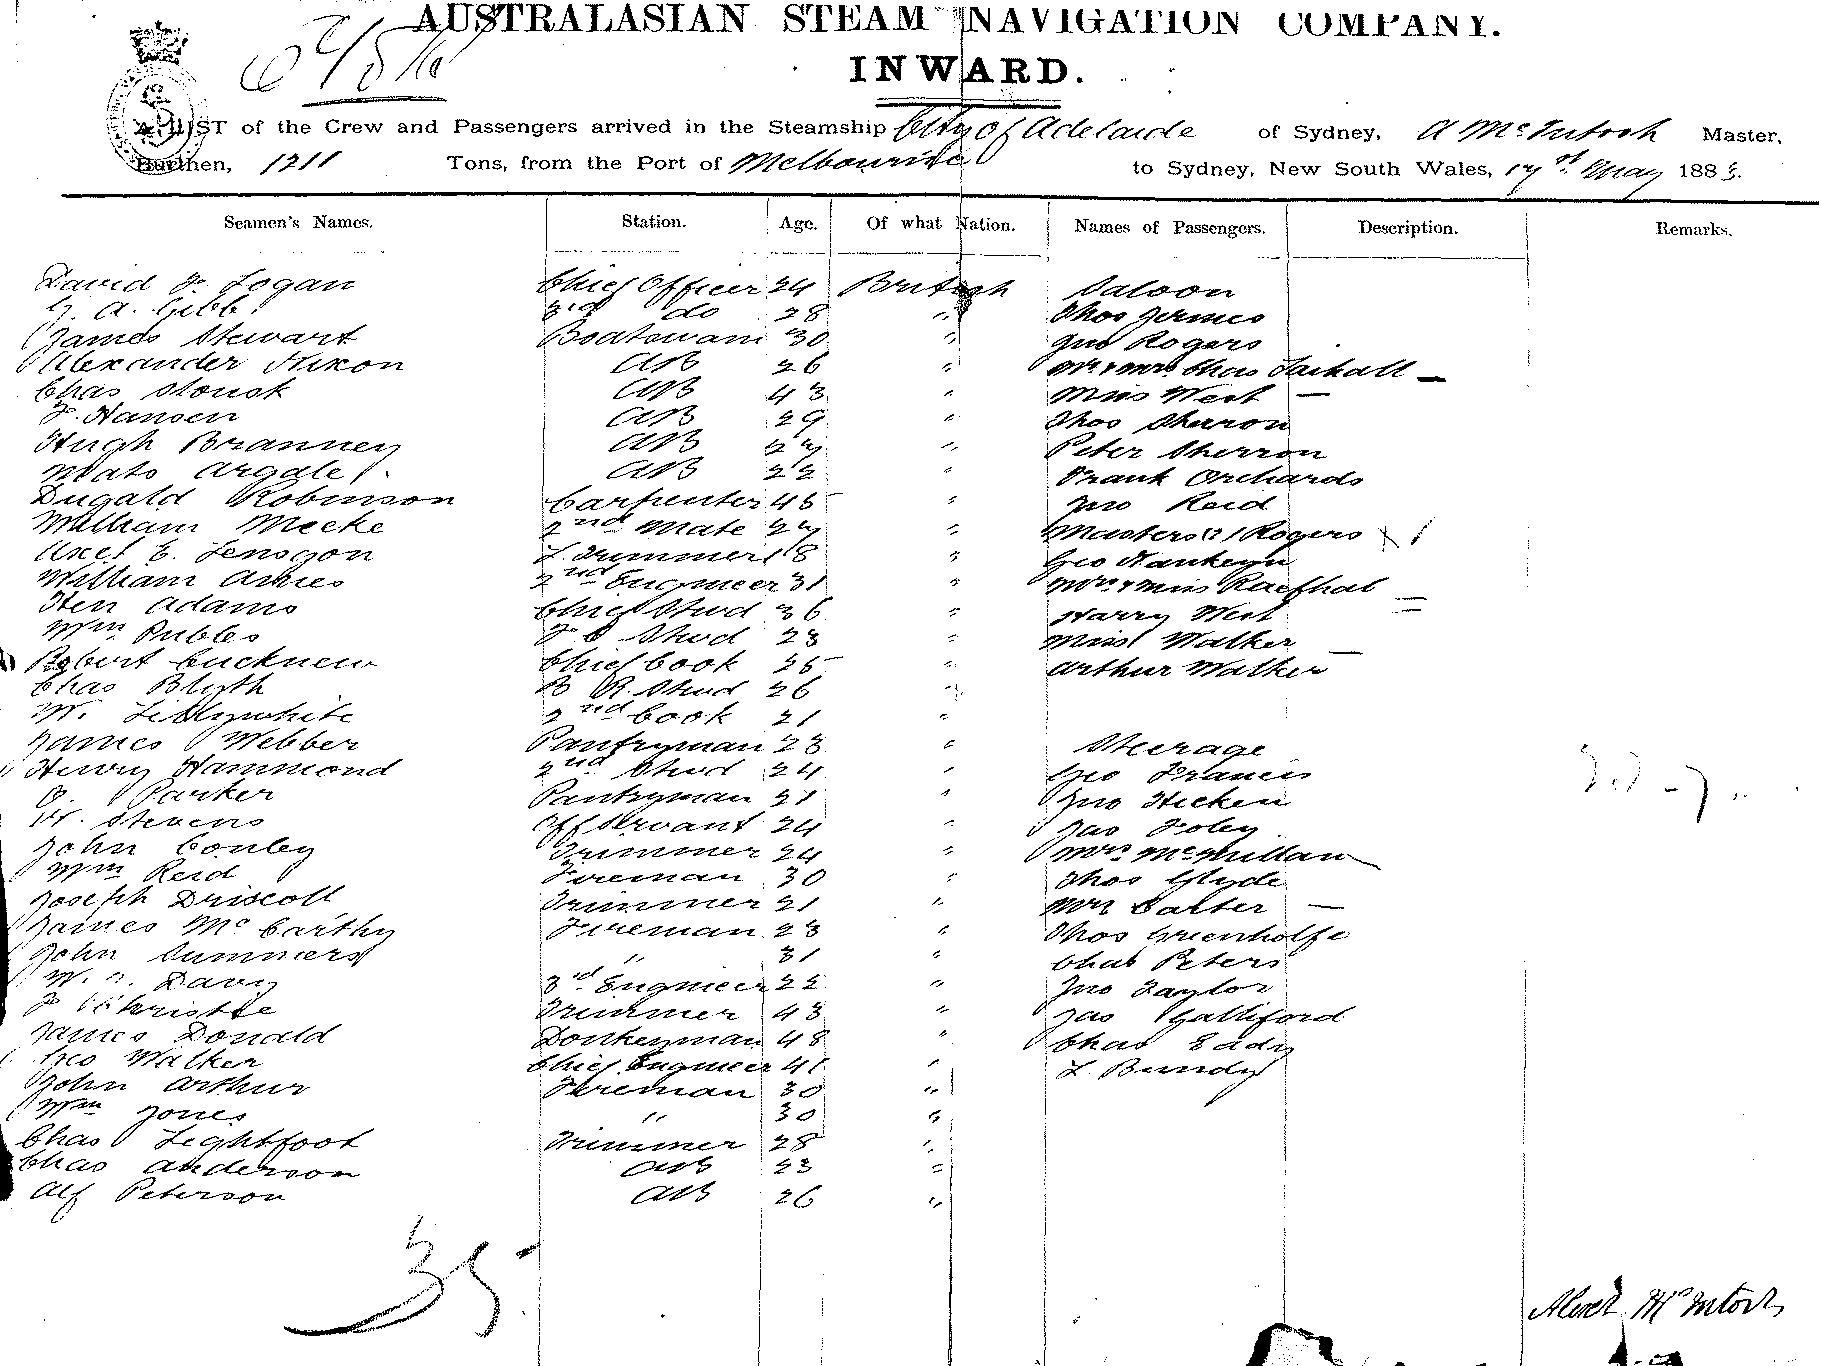 AUSTRALASIAN STEAM NAVIGATION COMPANY.
INWARD.
A LIST of the Crew and Passengers arrived in the Steamship City of Adelaide of Sydney, A McIntosh Master,
Burthen, 1211 Tons, from the Port of Melbourne to Sydney, New South Wales, 17th May 1883.
Seamen's Names. Station. Age. Of what Nation. Names of Passengers. Description. Remarks.
David Logan Chief Officer 24 British Saloon
A. Gibb 3rd do 28 " Thos
James Stewart Boatswain 30 " Jno Rogers
Alexander Nixon AB 26 " Mr & Mrs Chas
Chas AB 43 " Miss West
Hansen AB 29 " Thos Sherron
Hugh Branney AB 27 " Peter Sherron
Mats Argale AB 22 " Frank Orchards
Dugald Robinson Carpenter 45 " Jno Reid
William Mecke 2nd Mate 27 " Masters (2) Rogers
Axel E. Trimmer 18 " Geo
William Amies 2nd Engineer 31 " Mrs & Miss
Hen Adams Chief Stwd 36 " Harry West
Wm Stwd 23 " Miss Walker
Robert Chief Cook 25 " Arthur Walker
Chas Blyth B R. Stwd 26 "
W. Lillywhite 2nd Cook 21 "
James Webber Pantryman 23 " Steerage
Henry Hammond 2nd Stwd 24 " Geo Francis
Parker Pantryman 21 " Jno Hicken
H. Stevens Off Servant 24 " Jas Foley
John Conley Trimmer 24 " Mrs McMillan
Wm Reid Fireman 30 " Thos Glyde
Joseph Driscoll Trimmer 21 " Mrs Carter
James McCarthy Fireman 23 " Thos Greenholfe
John Summers " 31 " Chas Peters
W. Davy 3rd Engineer 22 " Jno Taylor
Christie Trimmer 43 " Jas Galliford
James Donald Donkeyman 48 " Chas Eady
Geo Walker Chief Engineer 41 " L. Bundy
John Arthur Fireman 30 "
Wm Jones " 30 "
Chas Lightfoot Trimmer 28 "
Chas Anderson AB 23 "
Alf Peterson AB 26 "
35
Alexr McIntosh